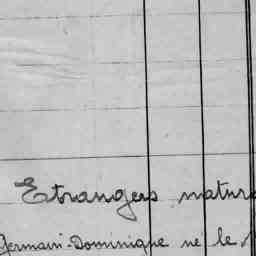 Etrangers natur
Germain-Dominique né le